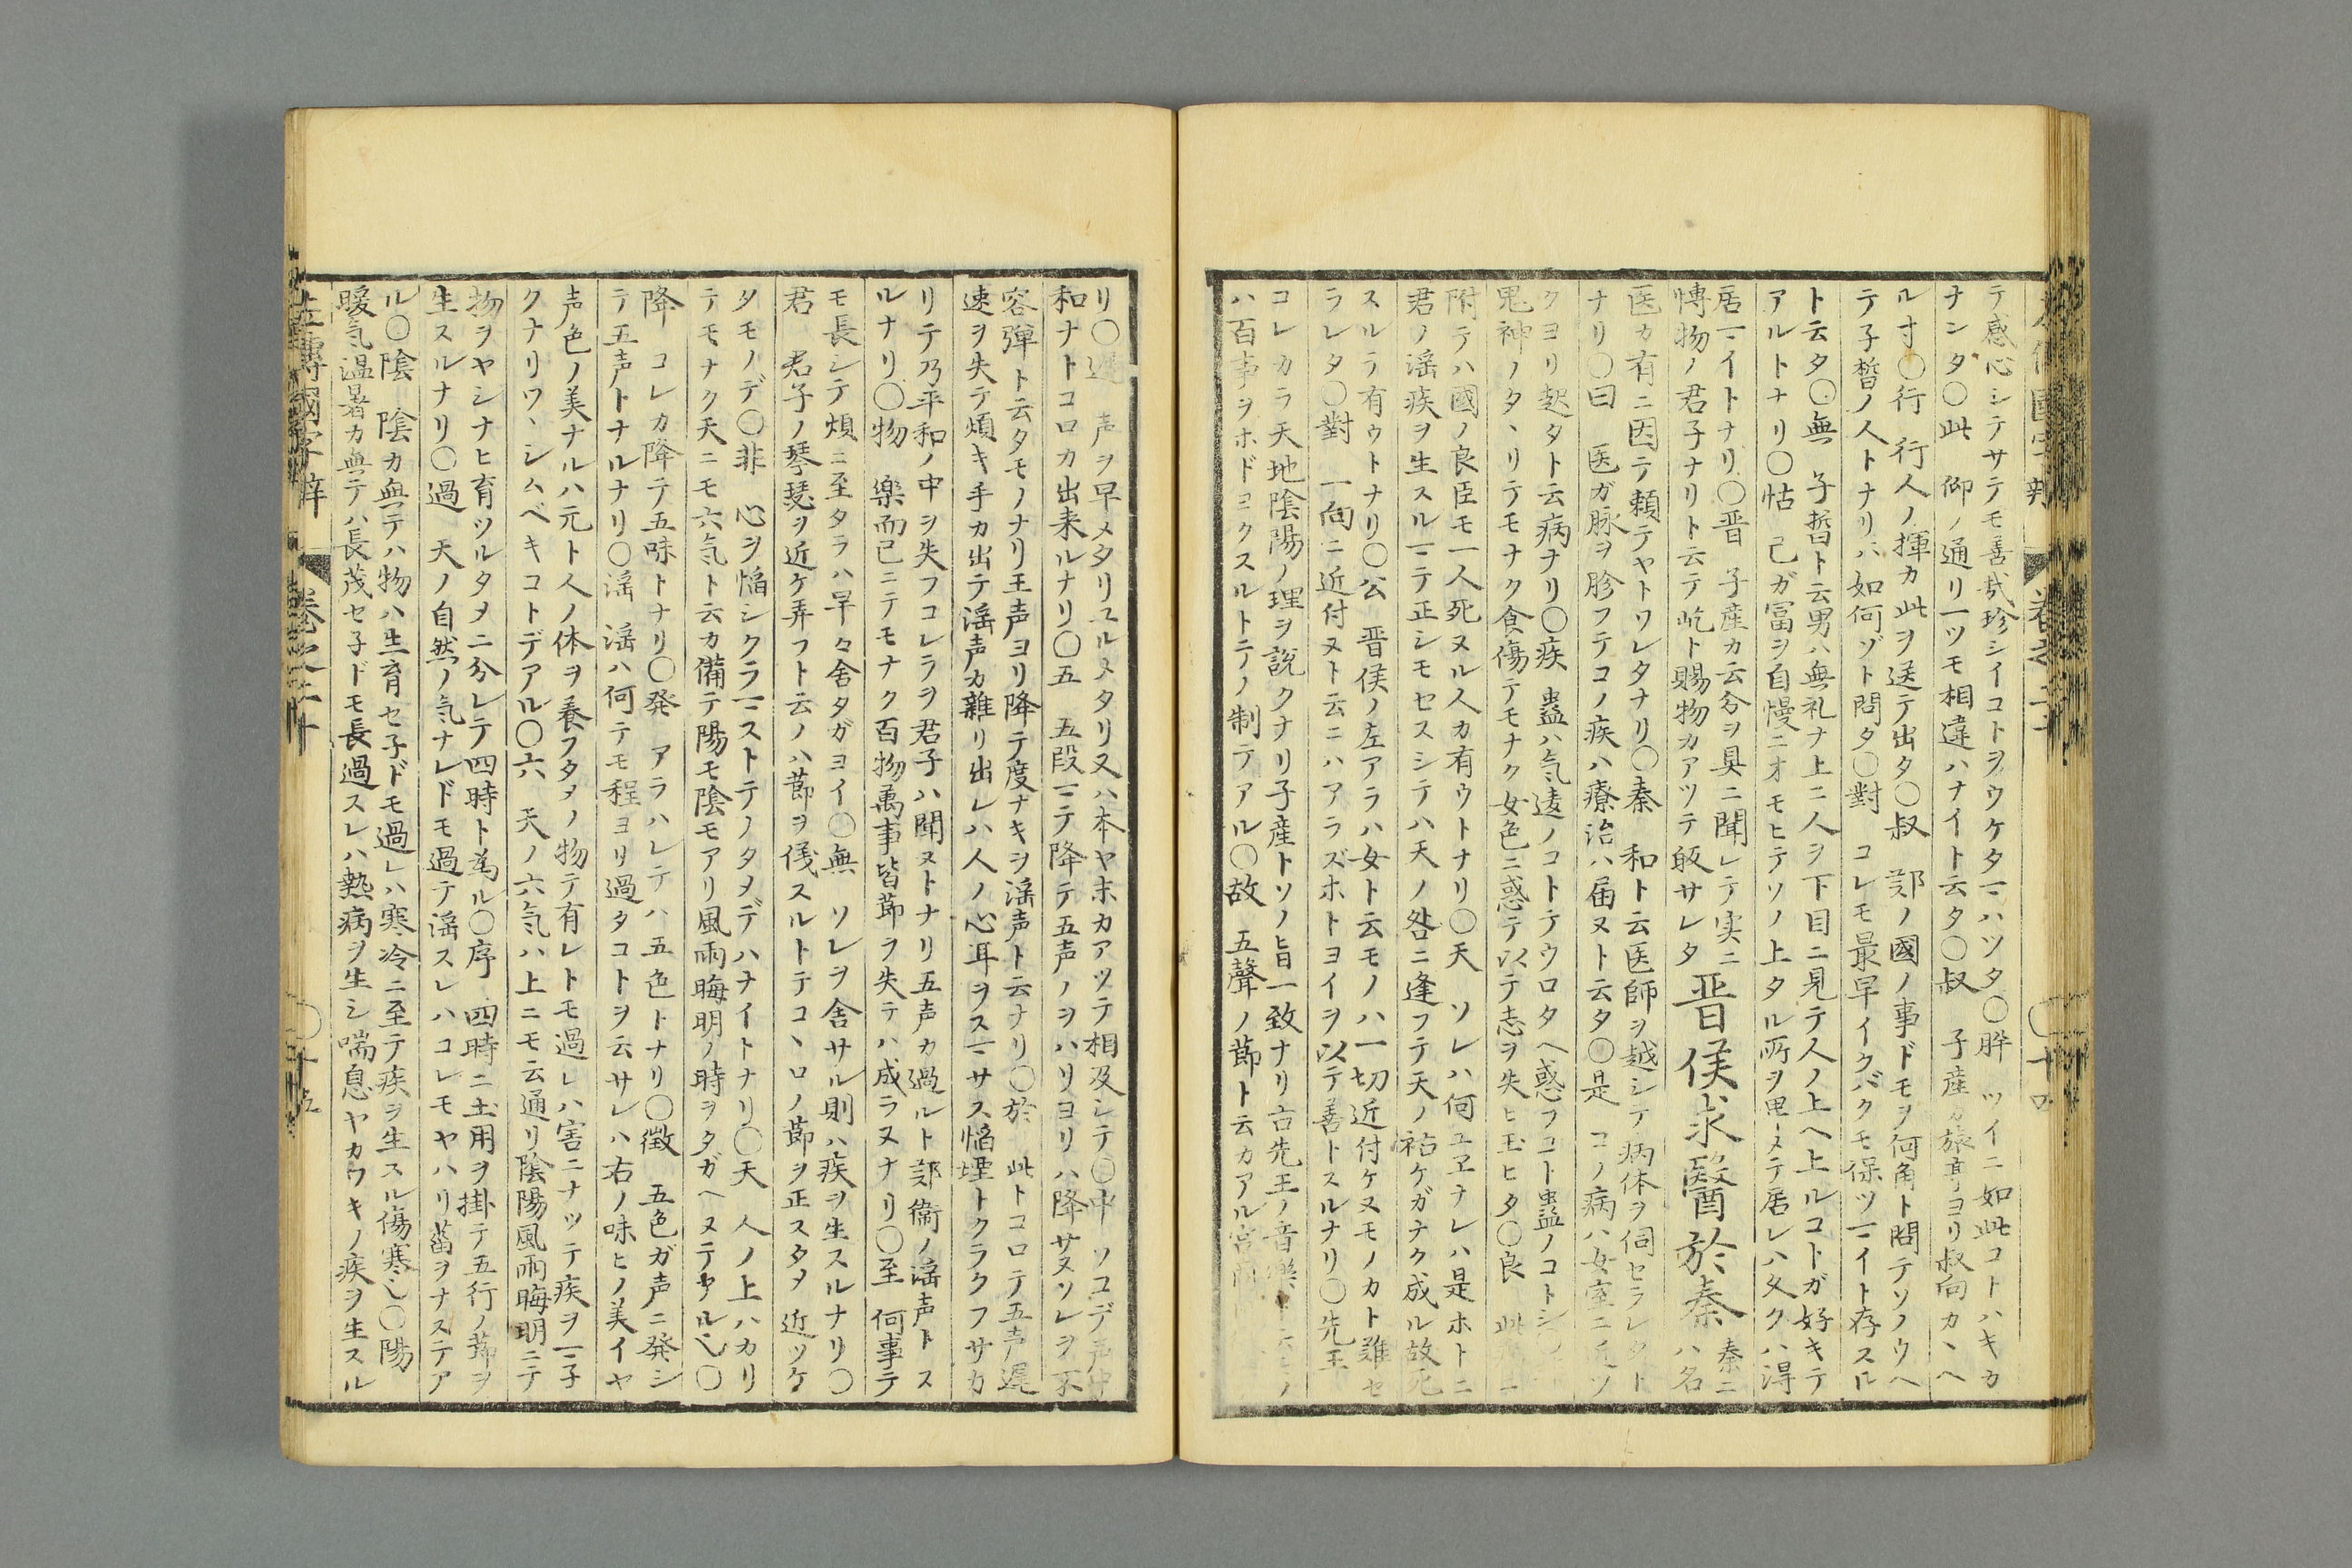 テ感心シテサテモ善哉珍シイコトヲウケタマハツタ〇胖 ツイニ如此コトハキカ
ナンタ〇此 仰ノ通リ一ツモ相違ハナイト云タ〇叔 子産カ旅亭ヨリ叔向カヽヘ
ル寸〇行 行人ノ揮カ此ヲ送テ出タ〇叔 鄭ノ國ノ事ドモヲ何角ト問テソノウヘ
テ子晳ノ人トナリハ如何ゾト問タ〇對 コレモ最早イクバクモ保ツマイト存スル
ト云タ〇無 子晳ト云男ハ無礼ナ上ニ人ヲ下目ニ見テ人ノ上ヘ上ルコトガ好キテ
アルトナリ〇怙 己ガ冨ヲ自慢ニオモヒテソノ上タル所ヲ卑メテ居レハ久クハ得
居マイトナリ〇晋 子産カ云分ヲ具ニ聞レテ実ニ
博物ノ君子ナリト云テ屹ト賜物カアツテ皈サレタ
晋侯求醫於秦
秦ニ
ハ名
医カ有ニ因テ頼テヤトワレタナリ〇秦 和ト云医師ヲ越シテ病体ヲ伺セラレタト
ナリ〇曰 医ガ脉ヲ胗フテコノ疾ハ療治ハ届ヌト云タ〇是 コノ病ハ女室ニ近ツ
クヨリ起タト云病ナリ〇疾 蠱ハ気逺ノコトテウロタヘ惑フコト蠱ノコトシ
鬼神ノタヽリテモナク食傷テモナク女色ニ惑テ以テ志ヲ失ヒ玉ヒタ〇良 此
附テハ國ノ良臣モ一人死ヌル人カ有ウトナリ〇天 ソレハ何ユヱナレハ是ホトニ
君ノ滛疾ヲ生スルマテ正シモセスシテハ天ノ咎ニ逢フテ天ノ祐ケガナク成ル故死
スルラ有ウトナリ〇公 晋侯ノ左アラハ女ト云モノハ一切近付ケヌモノカト難セ
ラレタ〇對 一向ニ近付ヌト云ニハアラズホトヨイヲ以テ善トスルナリ〇先王
コレカラ天地陰陽ノ理ヲ説クナリ子産トソノ旨一致ナリ古先王ノ音樂ト云モノ
ハ百事ヲホドヨクスルトテノ制テアル〇故 五聲ノ節ト云カアル宮商
リ〇遲 声ヲ早メタリユルメタリ又ハ本ヤ末カアツテ相及シテ〇中 ソコデ声中
和ナトコロカ出来ルナリ〇五 五段マテ降テ五声ノヲハリヨリハ降サヌソレヲ不
容彈ト云タモノナリ五声ヨリ降テ度ナキヲ滛声ト云ナリ〇於 此トコロテ五声遲
速ヲ失テ煩キ手カ出テ滛声カ雜リ出レハ人ノ心耳ヲスマサス慆堙トクラクフサカ
リテ乃平和ノ中ヲ失フコレラヲ君子ハ聞ヌトナリ五声カ過ルト鄭衞ノ滛声トス
ルナリ〇物 樂而已ニテモナク百物萬事皆節ヲ失テハ成ラヌナリ〇至 何事テ
モ長シテ煩ニ至タラハ早々舎タガヨイ〇無 ソレヲ舎サル則ハ疾ヲ生スルナリ〇
君 君子ノ琴瑟ヲ近ケ弄フト云ノハ節ヲ儀スルトテコヽロノ節ヲ正スタメ近ツケ
タモノデ〇非 心ヲ慆シクラマストテノタメデハナイトナリ〇天 人ノ上ハカリ
テモナク天ニモ六気ト云カ備テ陽モ陰モアリ風雨晦明ノ時ヲタガヘヌテヤル也〇
降 コレカ降テ五味トナリ〇発 アラハレテハ五色トナリ〇徴 五色ガ声ニ発シ
テ五声トナルナリ〇滛 滛ハ何テモ程ヨリ過タコトヲ云サレハ右ノ味ヒノ美イヤ
声色ノ美ナルハ元ト人ノ体ヲ養フタメノ物テ有レトモ過レハ害ニナツテ疾ヲマ子
クナリワヽシムベキコトデアル〇六 天ノ六気ハ上ニモ云通リ陰陽風雨晦明ニテ
物ヲヤシナヒ育ツルタメニ分レテ四時ト為ル〇序 四時ニ土用ヲ掛テ五行ノ節ヲ
生スルナリ〇過 天ノ自然ノ気ナレドモ過テ滛スレハコレモヤハリ菑ヲナステア
ル〇陰 陰カ無テハ物ハ生育セ子ドモ過レハ寒冷ニ至テ疾ヲ生スル傷寒也〇陽
暖気温暑カ無テハ長茂セ子ドモ長過スレハ熱病ヲ生シ喘息ヤカワキノ疾ヲ生スル
左傳國字辯 卷之二十 〇十五